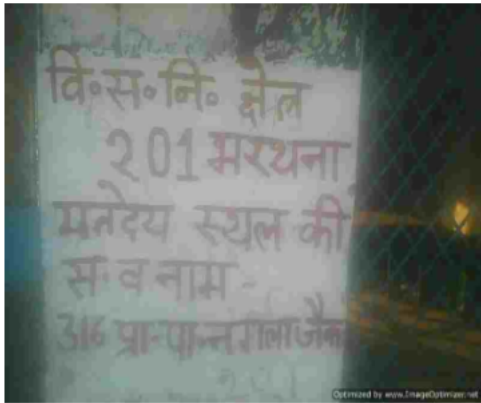 वि०स०नि० क्षेत्र
201 भरथना
मतदेय स्थल की
स. व नाम -
316 प्रा-पा-नगला
Optimized by www.ImageOptimizer.net